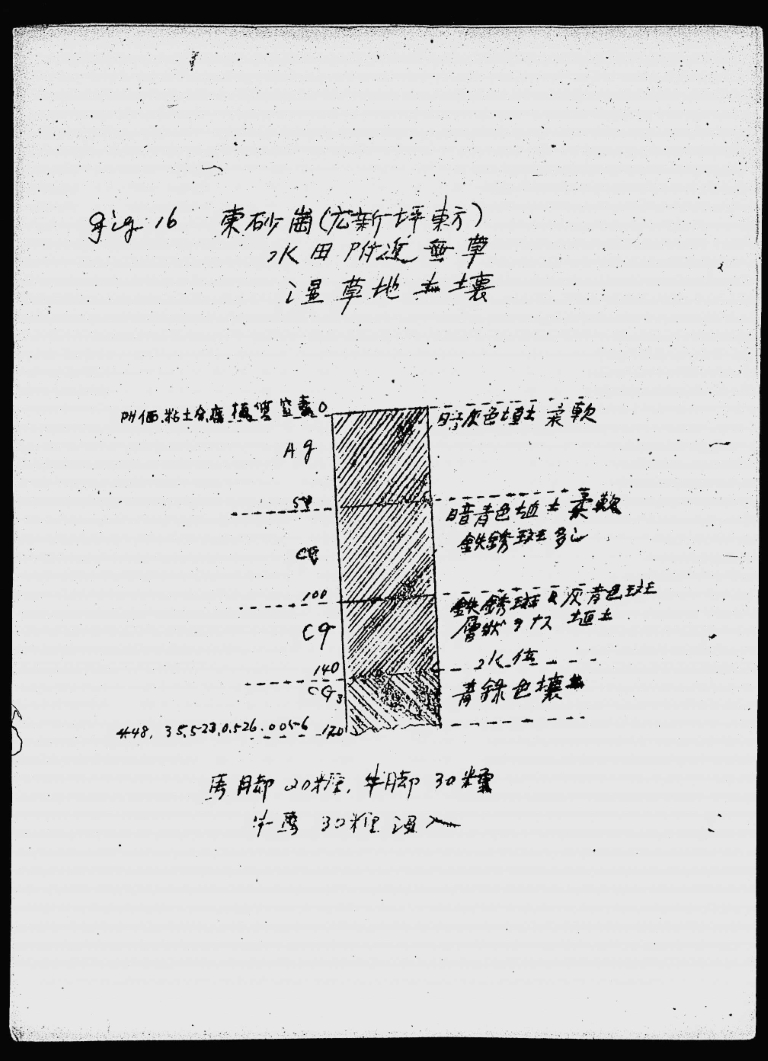 Fig 16 東砂崗(宏新坪東方)
水田附近無草
湿草地土壌
PH価.粘土分.腐植窒素 0
暗灰色埴土 柔軟
Ag
50
暗青色埴土 柔軟
鉄銹斑多シ
CG
100
鉄銹斑ト灰青色斑
層状ヲナス 埴土
CG
140
水位
CG3
青緑色壌土
4.48, 35.523, 0.526, 0.056 170
馬脚 20糎, 牛脚 30糎
牛馬 30糎 没入